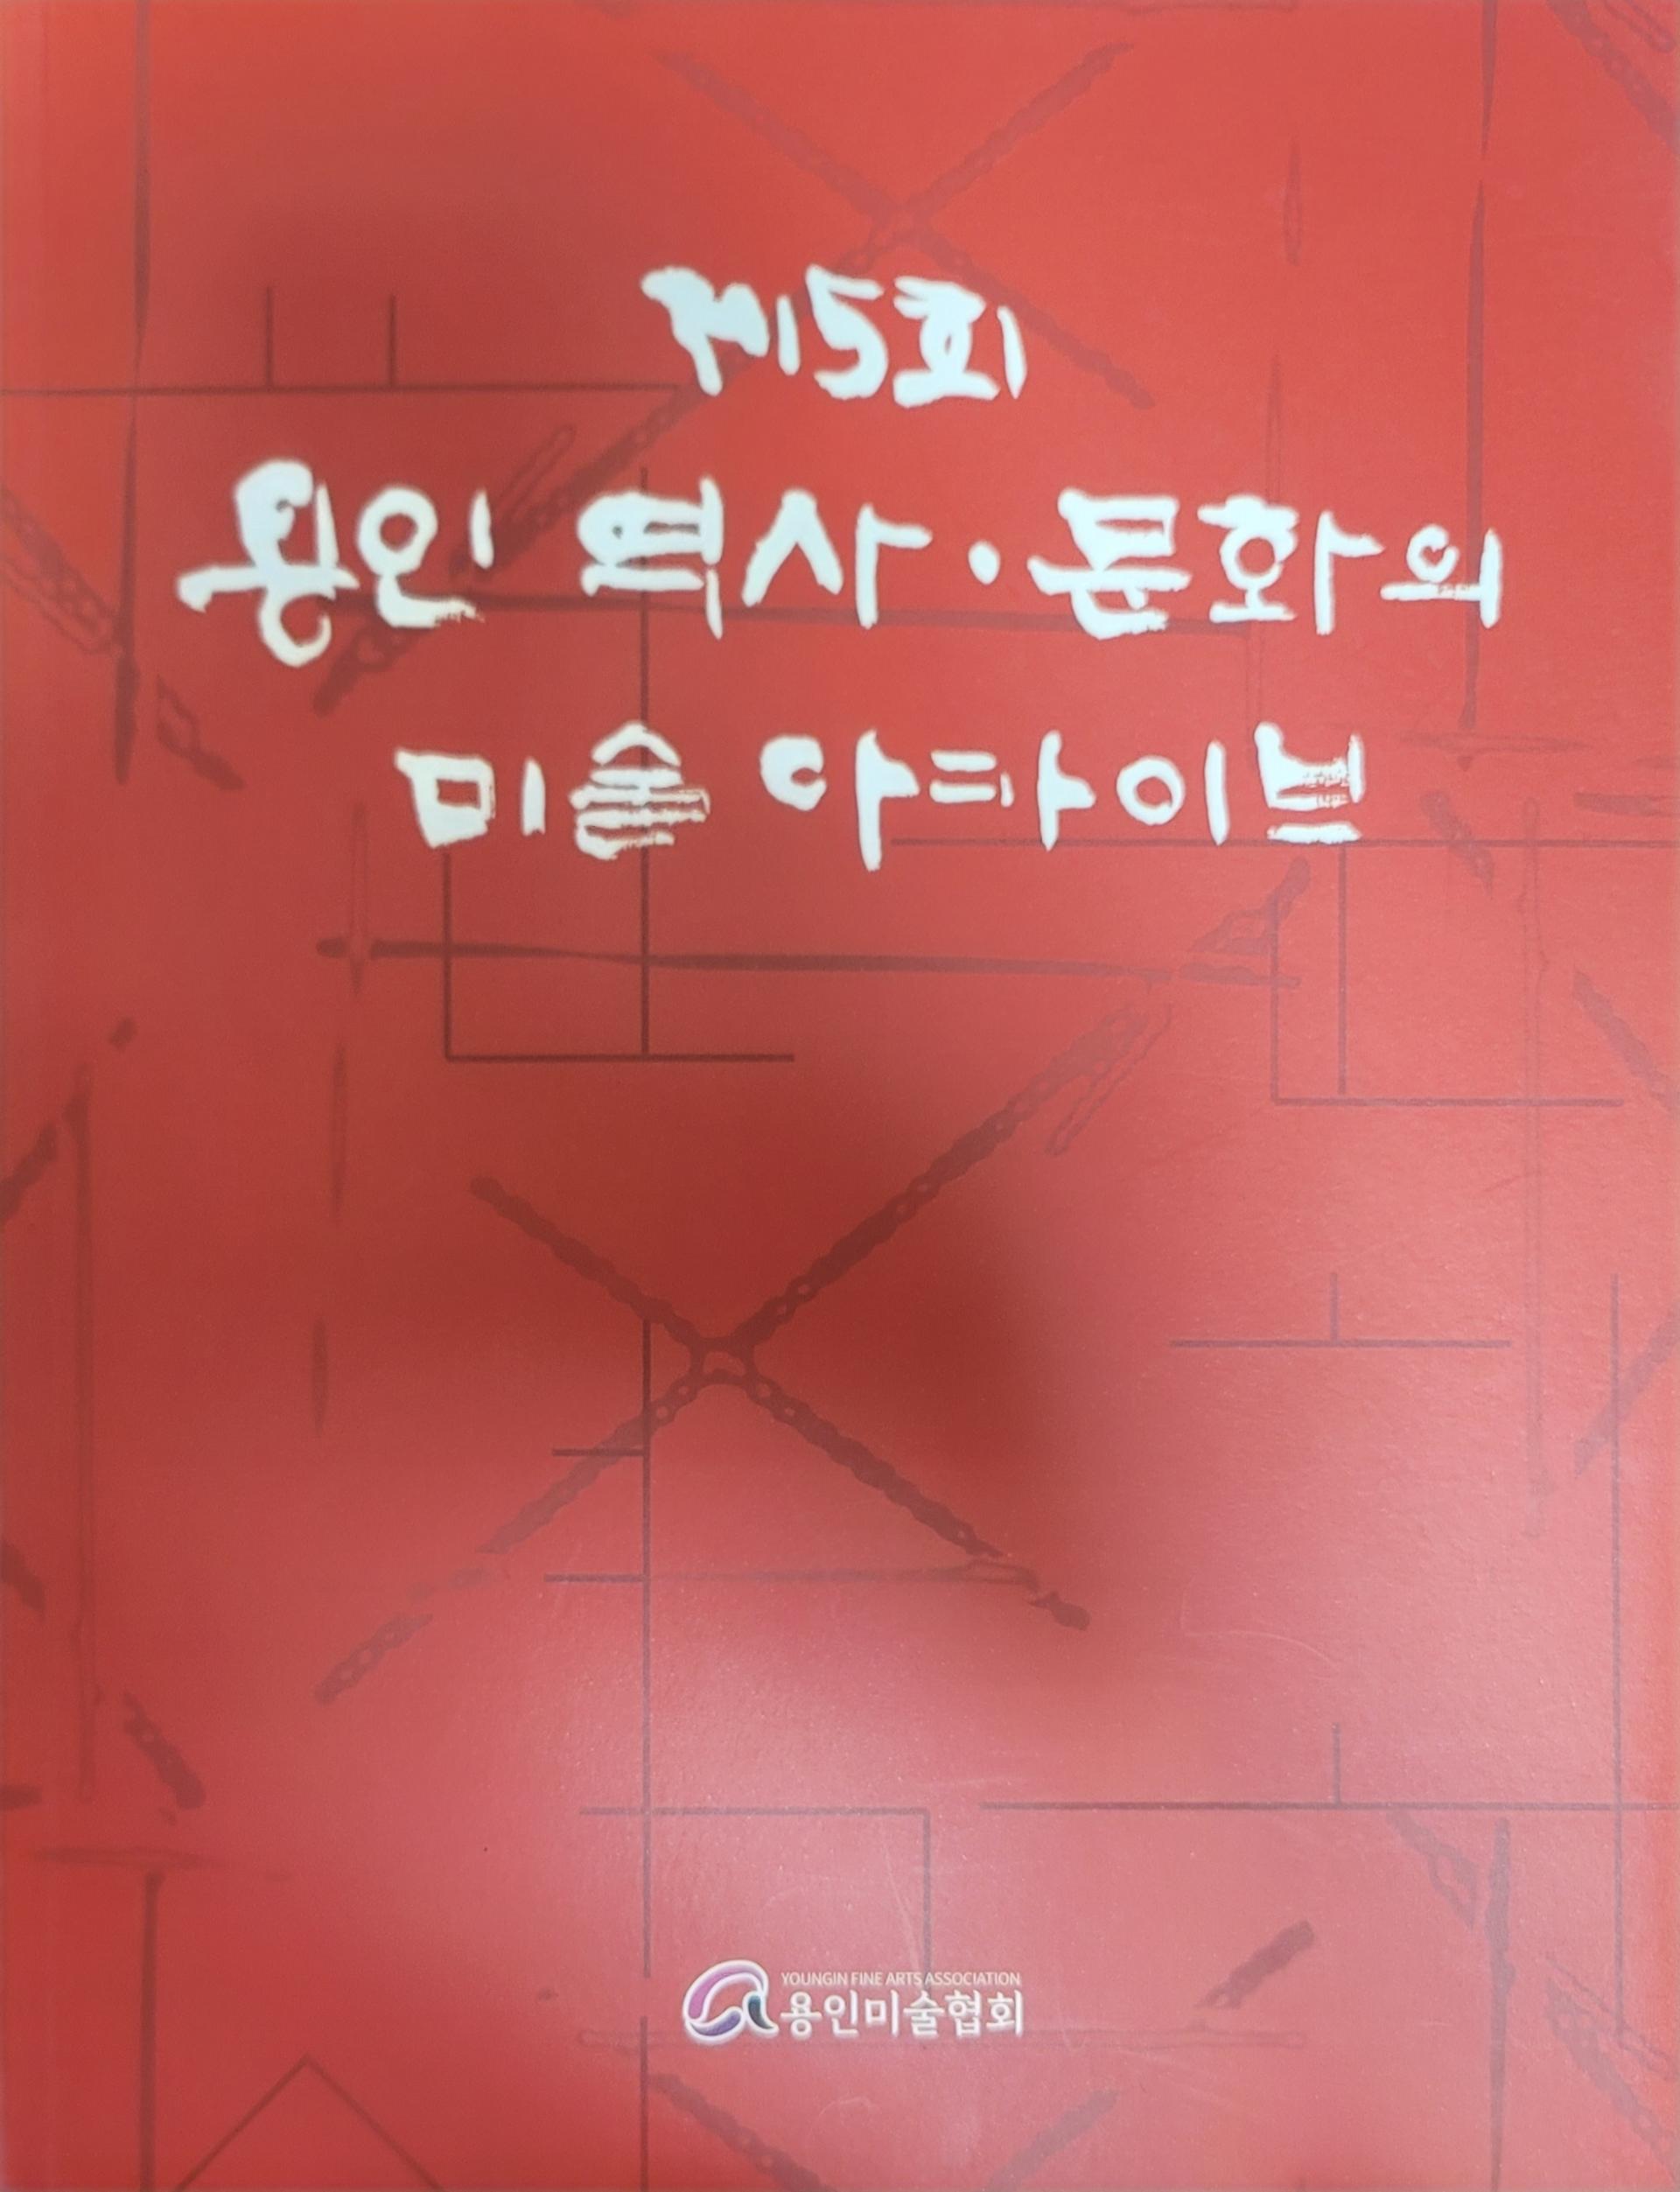 제5회
용인 역사·문화의
미술 아카이브
YOUNGIN FINE ARTS ASSOCIATION
용인미술협회